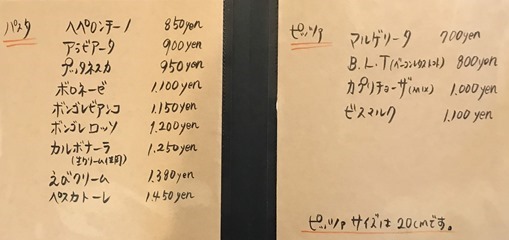 パスタ
ペペロンチーノ 850yen
アラビアータ 900yen
プッタネスカ 950yen
ボロネーゼ 1,100yen
ボンゴレビアンコ 1,150yen
ボンゴレロッソ 1,200yen
カルボナーラ 1,250yen
(生クリーム使用)
えびクリーム 1,380yen
ペスカトーレ 1,450yen
ピッツァ
マルゲリータ 700yen
B.L.T(ベーコンレタストマト) 800yen
カプリチョーザ(mix) 1,000yen
ビスマルク 1,100yen
ピッツァサイズは20cmです。